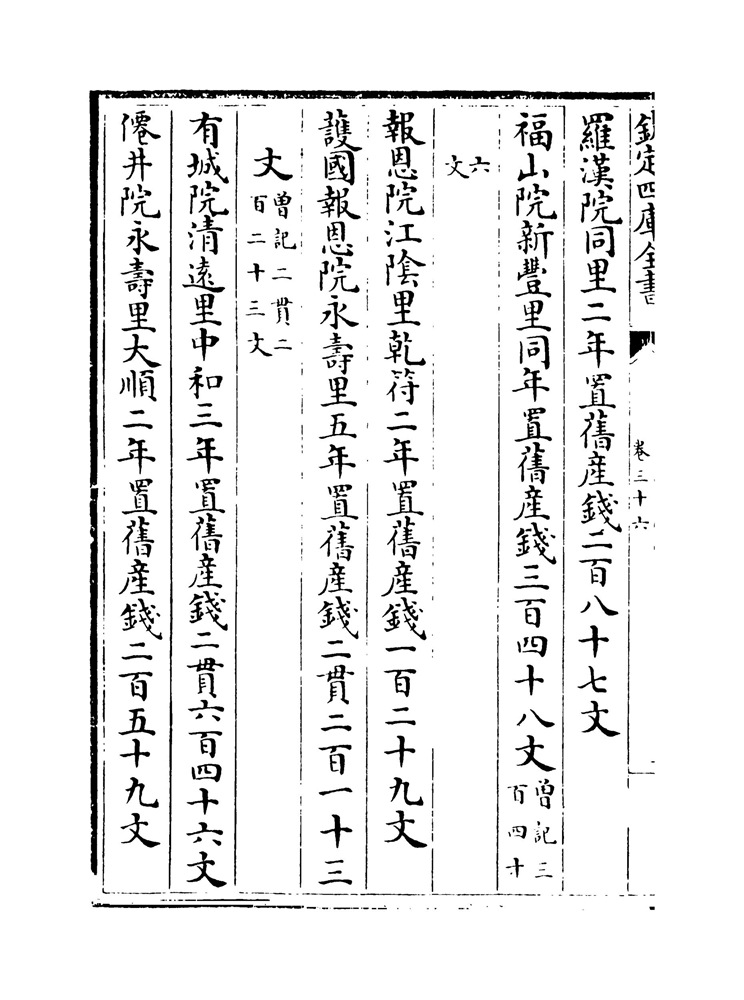 欽定四庫全書
卷三十六
羅漢院同里二年置舊産錢二百八十七文
福山院新豐里同年置舊産錢三百四十八文曾記三百四十
六文
報恩院江陰里乾符二年置舊産錢一百二十九文
護國報恩院永壽里五年置舊産錢二貫二百一十三
文曾記二貫二百二十三文
有城院清遠里中和三年置舊産錢二貫六百四十六文
僊井院永壽里大順二年置舊産錢二百五十九文